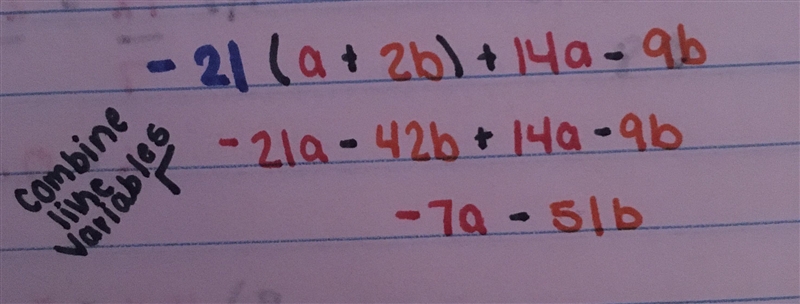 -21(a + 2b) + 14a - 9b
-21a - 42b + 14a - 9b
combine
like
variables
-7a - 51b